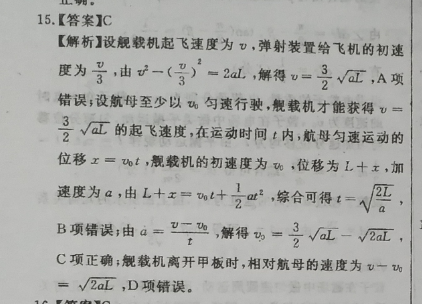 正确。
15.【答案】C
【解析】设舰载机起飞速度为 v,弹射装置给飞机的初速
度为 v/3,由 v²-(v/3)²=2aL,解得 v=3/2 √aL,A 项
错误;设航母至少以 v₀ 匀速行驶,舰载机才能获得 v=
3/2 √aL 的起飞速度,在运动时间 t 内,航母匀速运动的
位移 x=v₀t,舰载机的初速度为 v₀,位移为 L+x,加
速度为 a,由 L+x=v₀t+1/2 at²,综合可得 t=√(2L/a),
B 项错误;由 a=(v-v₀)/t,解得 v₀=3/2 √aL-√2aL,
C 项正确;舰载机离开甲板时,相对航母的速度为 v-v₀
=√2aL,D 项错误。